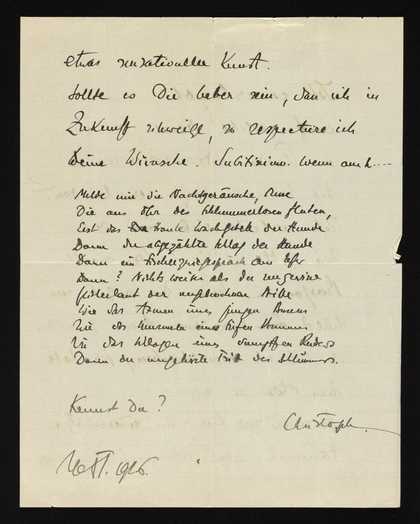 etwas sensationeller Kunst.
Sollte es Dir lieber sein, dass ich in
Zukunft schweige, so respectiere ich
Deine Wünsche. Subitissimo. Wenn auch....
Melde mir die Nachtgeräusche, Muse
Die ans Ohr des Schlummerlosen fluten,
Erst das traute Wachtgebell der Hunde
Dann der abgezählte Schlag der Stunde
Dann ein Fischerzwiegespräch am Ufer
Dann? Nichts weiter als der ungewisse
Geisterlaut der ungebrochnen Stille
Wie das Atmen eines jungen Busens
Wie das Murmeln eines tiefen Brunnens
Wie das Schlagen eines dumpfen Ruders
Dann der ungehörte Tritt des Schlummers.
Kennst Du?
Christoph.
1926.